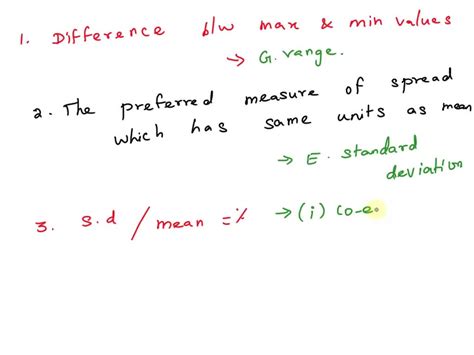 1. Difference b/w max & min values
→ G. range.
2. The preferred measure of spread
which has same units as mean
→ E. standard
deviation
3. s.d / mean = % → (i) co-e.